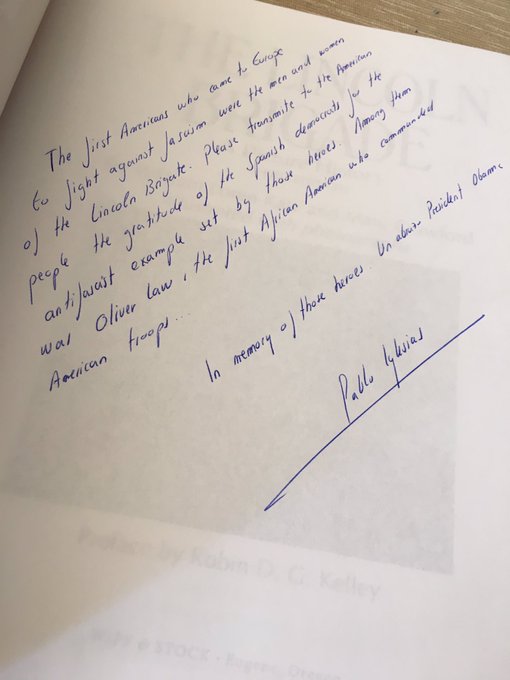 The first Americans who came to Europe
to fight against fascism were the men and women
of the Lincoln Brigade. Please transmite to the American
people the gratitude of the Spanish democrats for the
antifascist example set by those heroes. Among them
was Oliver Law, the first African American who commanded
American troops...
In memory of those heroes. Un abrazo President Obama.
Pablo Iglesias
Preface by Robin D. G. Kelley